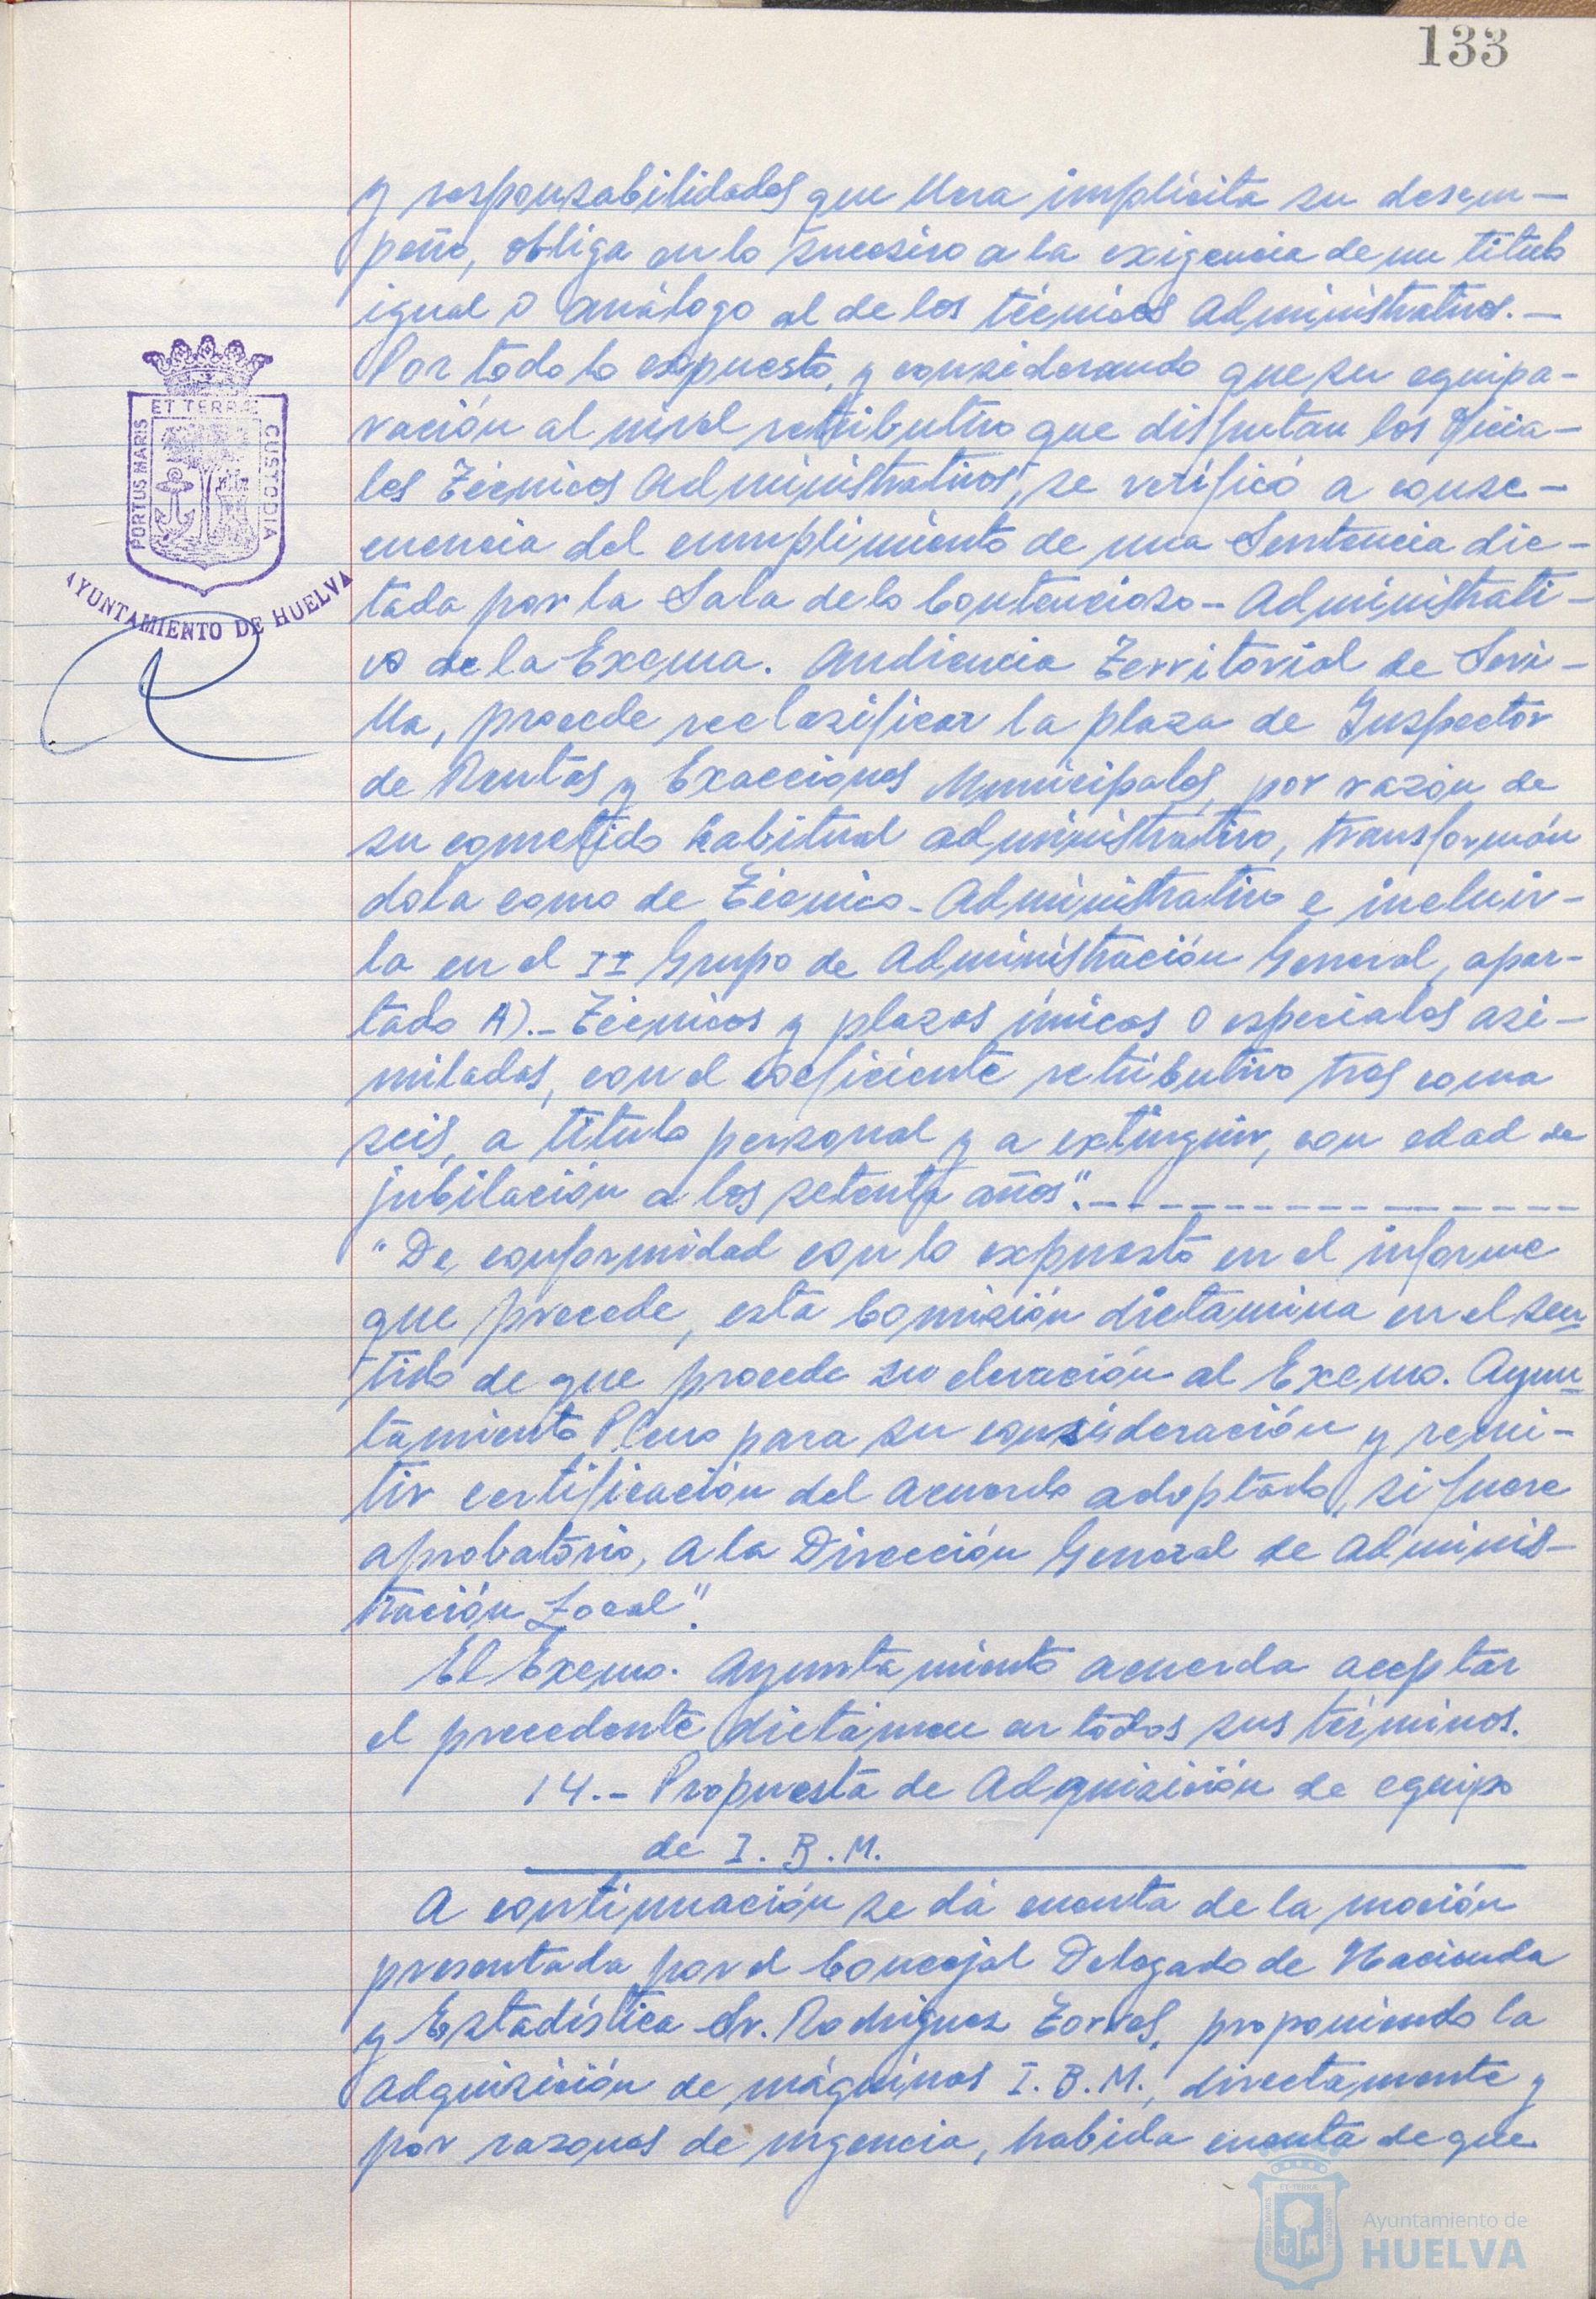 133
y responsabilidades que lleva implícita su desem-
peño, obliga en lo sucesivo a la exigencia de un título
igual o análogo al de los técnicos Administrativos.-
Por todo lo expuesto, y considerando que su equipa-
ración al nivel retributivo que disfrutan los Oficia-
les Técnicos Administrativos, se verificó a conse-
cuencia del cumplimiento de una Sentencia dic-
tada por la Sala de lo Contencioso-Administrati-
vo de la Excma. Audiencia Territorial de Sevi-
lla, procede reclasificar la plaza de Inspector
de Rentas y Exacciones Municipales, por razón de
su cometido habitual administrativo, transformán
dola como de Técnico-Administrativo e incluir-
la en el II Grupo de Administración General, apar-
tado A).- Técnicos y plazas únicas o especiales asi-
miladas, con el coeficiente retributivo tres coma
seis, a título personal y a extinguir, con edad de
jubilación a los setenta años".- - - - - - - - - - - - - - - -
"De conformidad con lo expuesto en el informe
que precede, esta Comisión dictamina en el sen-
tido de que procede su elevación al Excmo. Ayun-
tamiento Pleno para su consideración y remi-
tir certificación del acuerdo adoptado, si fuere
aprobatorio, a la Dirección General de Adminis-
tración Local".
El Excmo. Ayuntamiento acuerda aceptar
el precedente dictamen en todos sus términos.
14.- Propuesta de Adquisición de equipo
de I. B. M.
A continuación se dá cuenta de la moción
presentada por el Concejal Delegado de Hacienda
y Estadística Sr. Rodríguez Torres, proponiendo la
adquisición de máquinas I. B. M., directamente y
por razones de urgencia, habida cuenta de que
PORTUS MARIS
ET TERRÆ
CUSTODIA
AYUNTAMIENTO DE HUELVA
Ayuntamiento de
HUELVA